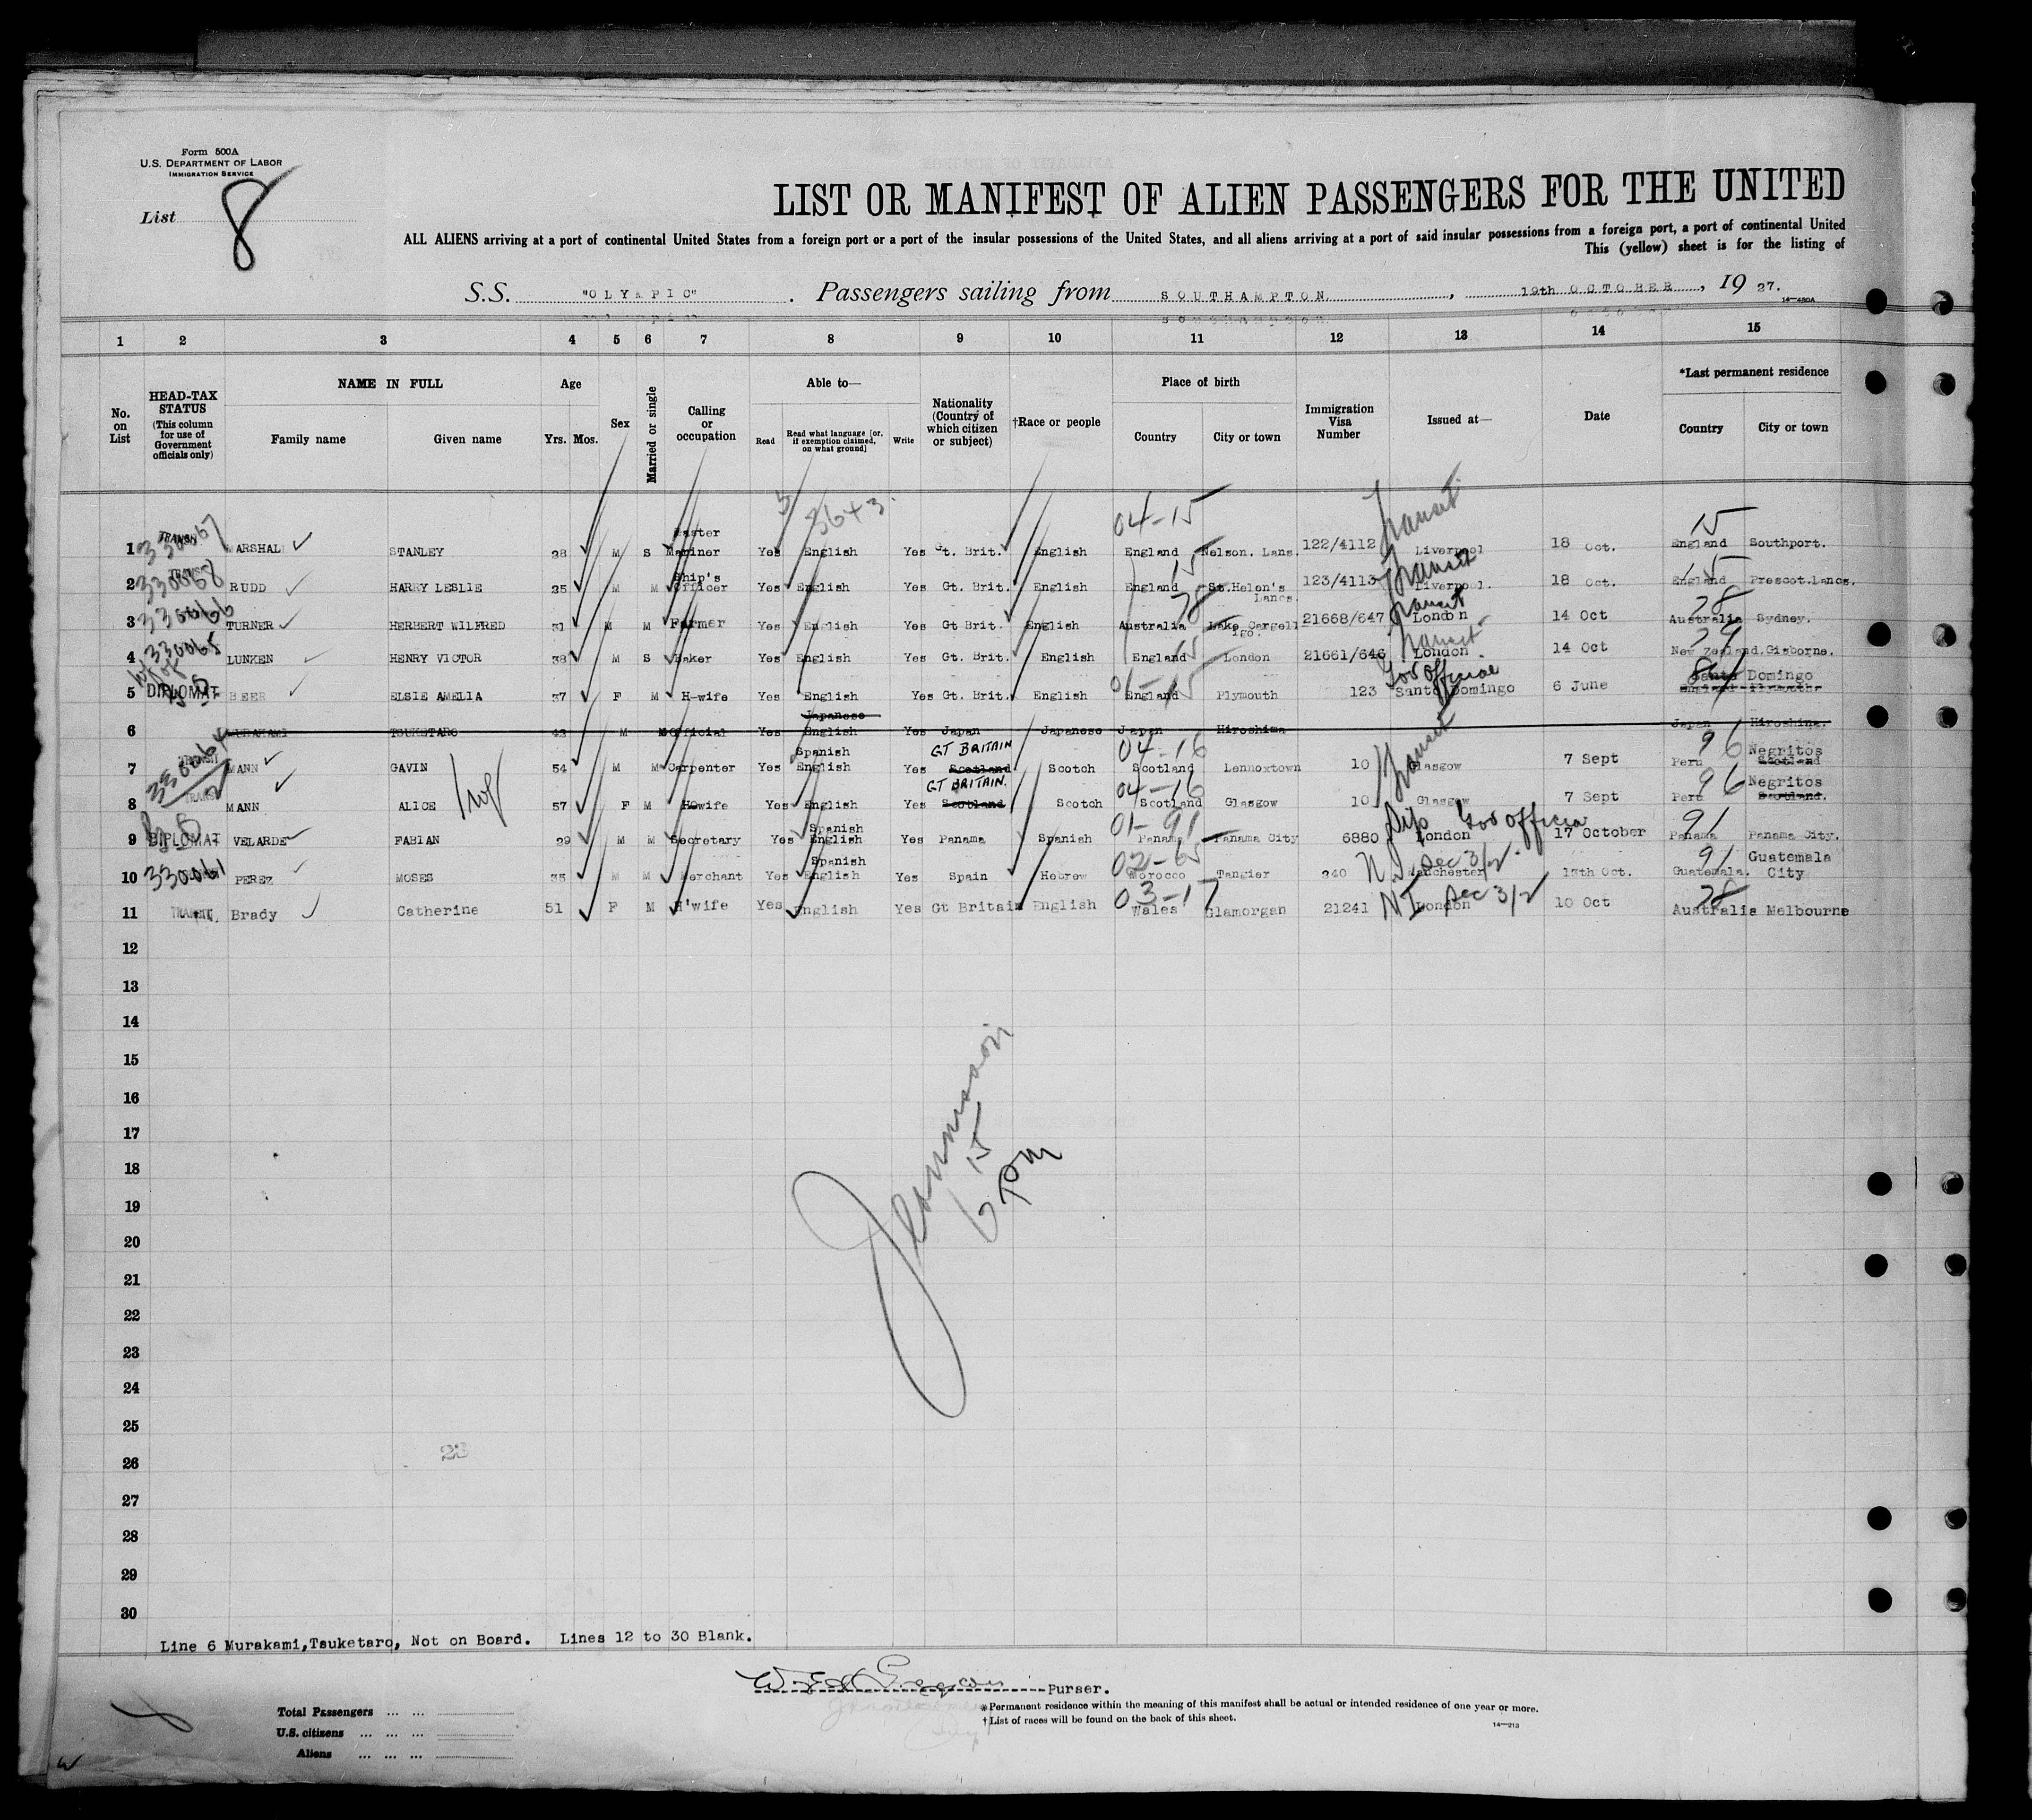 Form 500A
U.S. DEPARTMENT OF LABOR
IMMIGRATION SERVICE
List 8
LIST OR MANIFEST OF ALIEN PASSENGERS FOR THE UNITED
ALL ALIENS arriving at a port of continental United States from a foreign port or a port of the insular possessions of the United States, and all aliens arriving at a port of said insular possessions from a foreign port, a port of continental United
This (yellow) sheet is for the listing of
S.S. "OLYMPIC". Passengers sailing from SOUTHAMPTON, 19th OCTOBER, 1927.
14—480A
1 2 3 4 5 6 7 8 9 10 11 12 13 14 15
No. on List
HEAD-TAX STATUS (This column for use of Government officials only)
NAME IN FULL
Family name Given name
Age
Yrs. Mos.
Sex
Married or single
Calling or occupation
Able to—
Read Read what language [or, if exemption claimed, on what ground] Write
Nationality (Country of which citizen or subject)
†Race or people
Place of birth
Country City or town
Immigration Visa Number
Issued at—
Date
*Last permanent residence
Country City or town
3643
1 330067 TRANSIT MARSHALL STANLEY 28 M S Master Mariner Yes English Yes Gt. Brit. English 04-15 England Nelson. Lans. 122/4112 Transit Liverpool 18 Oct. 15 England Southport.
2 330068 TRANSIT RUDD HARRY LESLIE 35 M M Ship's Officer Yes English Yes Gt. Brit. English 15 England St.Helen's Lancs. 123/4113 Transit Liverpool. 18 Oct. 15 England Prescot.Lancs.
3 330066 TURNER HERBERT WILFRED 31 M M Farmer Yes English Yes Gt Brit. English 28 Australia Lake Cargelligo. 21668/647 Transit London 14 Oct 28 Australia Sydney.
4 330065 LUNKEN HENRY VICTOR 38 M S Baker Yes English Yes Gt. Brit. English 15 England London 21661/646 Transit London. 14 Oct 29 New Zealand. Gisborne.
5 DIPLOMAT BEER ELSIE AMELIA 37 F M H-wife Yes English Yes Gt. Brit. English 01-15 England Plymouth 123 Gov Official Santo Domingo 6 June Santo Domingo England Plymouth.
6 MURAKAMI TSUKETARO 43 M M Official Yes Japanese English Yes Japan Japanese Japan Hiroshima Japan Hiroshima.
7 330064 TRANSIT MANN GAVIN 54 M M Carpenter Yes Spanish English Yes GT BRITAIN Scotland Scotch 04-16 Scotland Lennoxtown 10 Transit Glasgow 7 Sept 96 Peru Negritos Scotland
8 TRANSIT MANN ALICE 57 F M H-wife Yes English Yes GT BRITAIN. Scotland Scotch 04-16 Scotland Glasgow 10 Glasgow 7 Sept 96 Peru Negritos Scotland.
9 DIPLOMAT VELARDE FABIAN 29 M M Secretary Yes Spanish English Yes Panama Spanish 01-91 Panama Panama City 6880 Dip Gov Official London 17 October 91 Panama Panama City.
10 330061 PEREZ MOSES 35 M M Merchant Yes Spanish English Yes Spain Hebrew 02-65 Morocco Tangier 240 N.I Sec 3/2 Manchester 13th Oct. 91 Guatemala. Guatemala City
11 TRANSIT Brady Catherine 51 F M H'wife Yes English Yes Gt Britain English 03-17 Wales Glamorgan 21241 N I Sec 3/2 London 10 Oct 28 Australia Melbourne
12
13
14
15
16
17
18
19
20
21
22
23
24
25
26
27
28
29
30
6 pm
23
Line 6 Murakami,Tsuketaro, Not on Board. Lines 12 to 30 Blank.
Purser.
Total Passengers
U.S. citizens
Aliens
*Permanent residence within the meaning of this manifest shall be actual or intended residence of one year or more.
†List of races will be found on the back of this sheet.
14—213